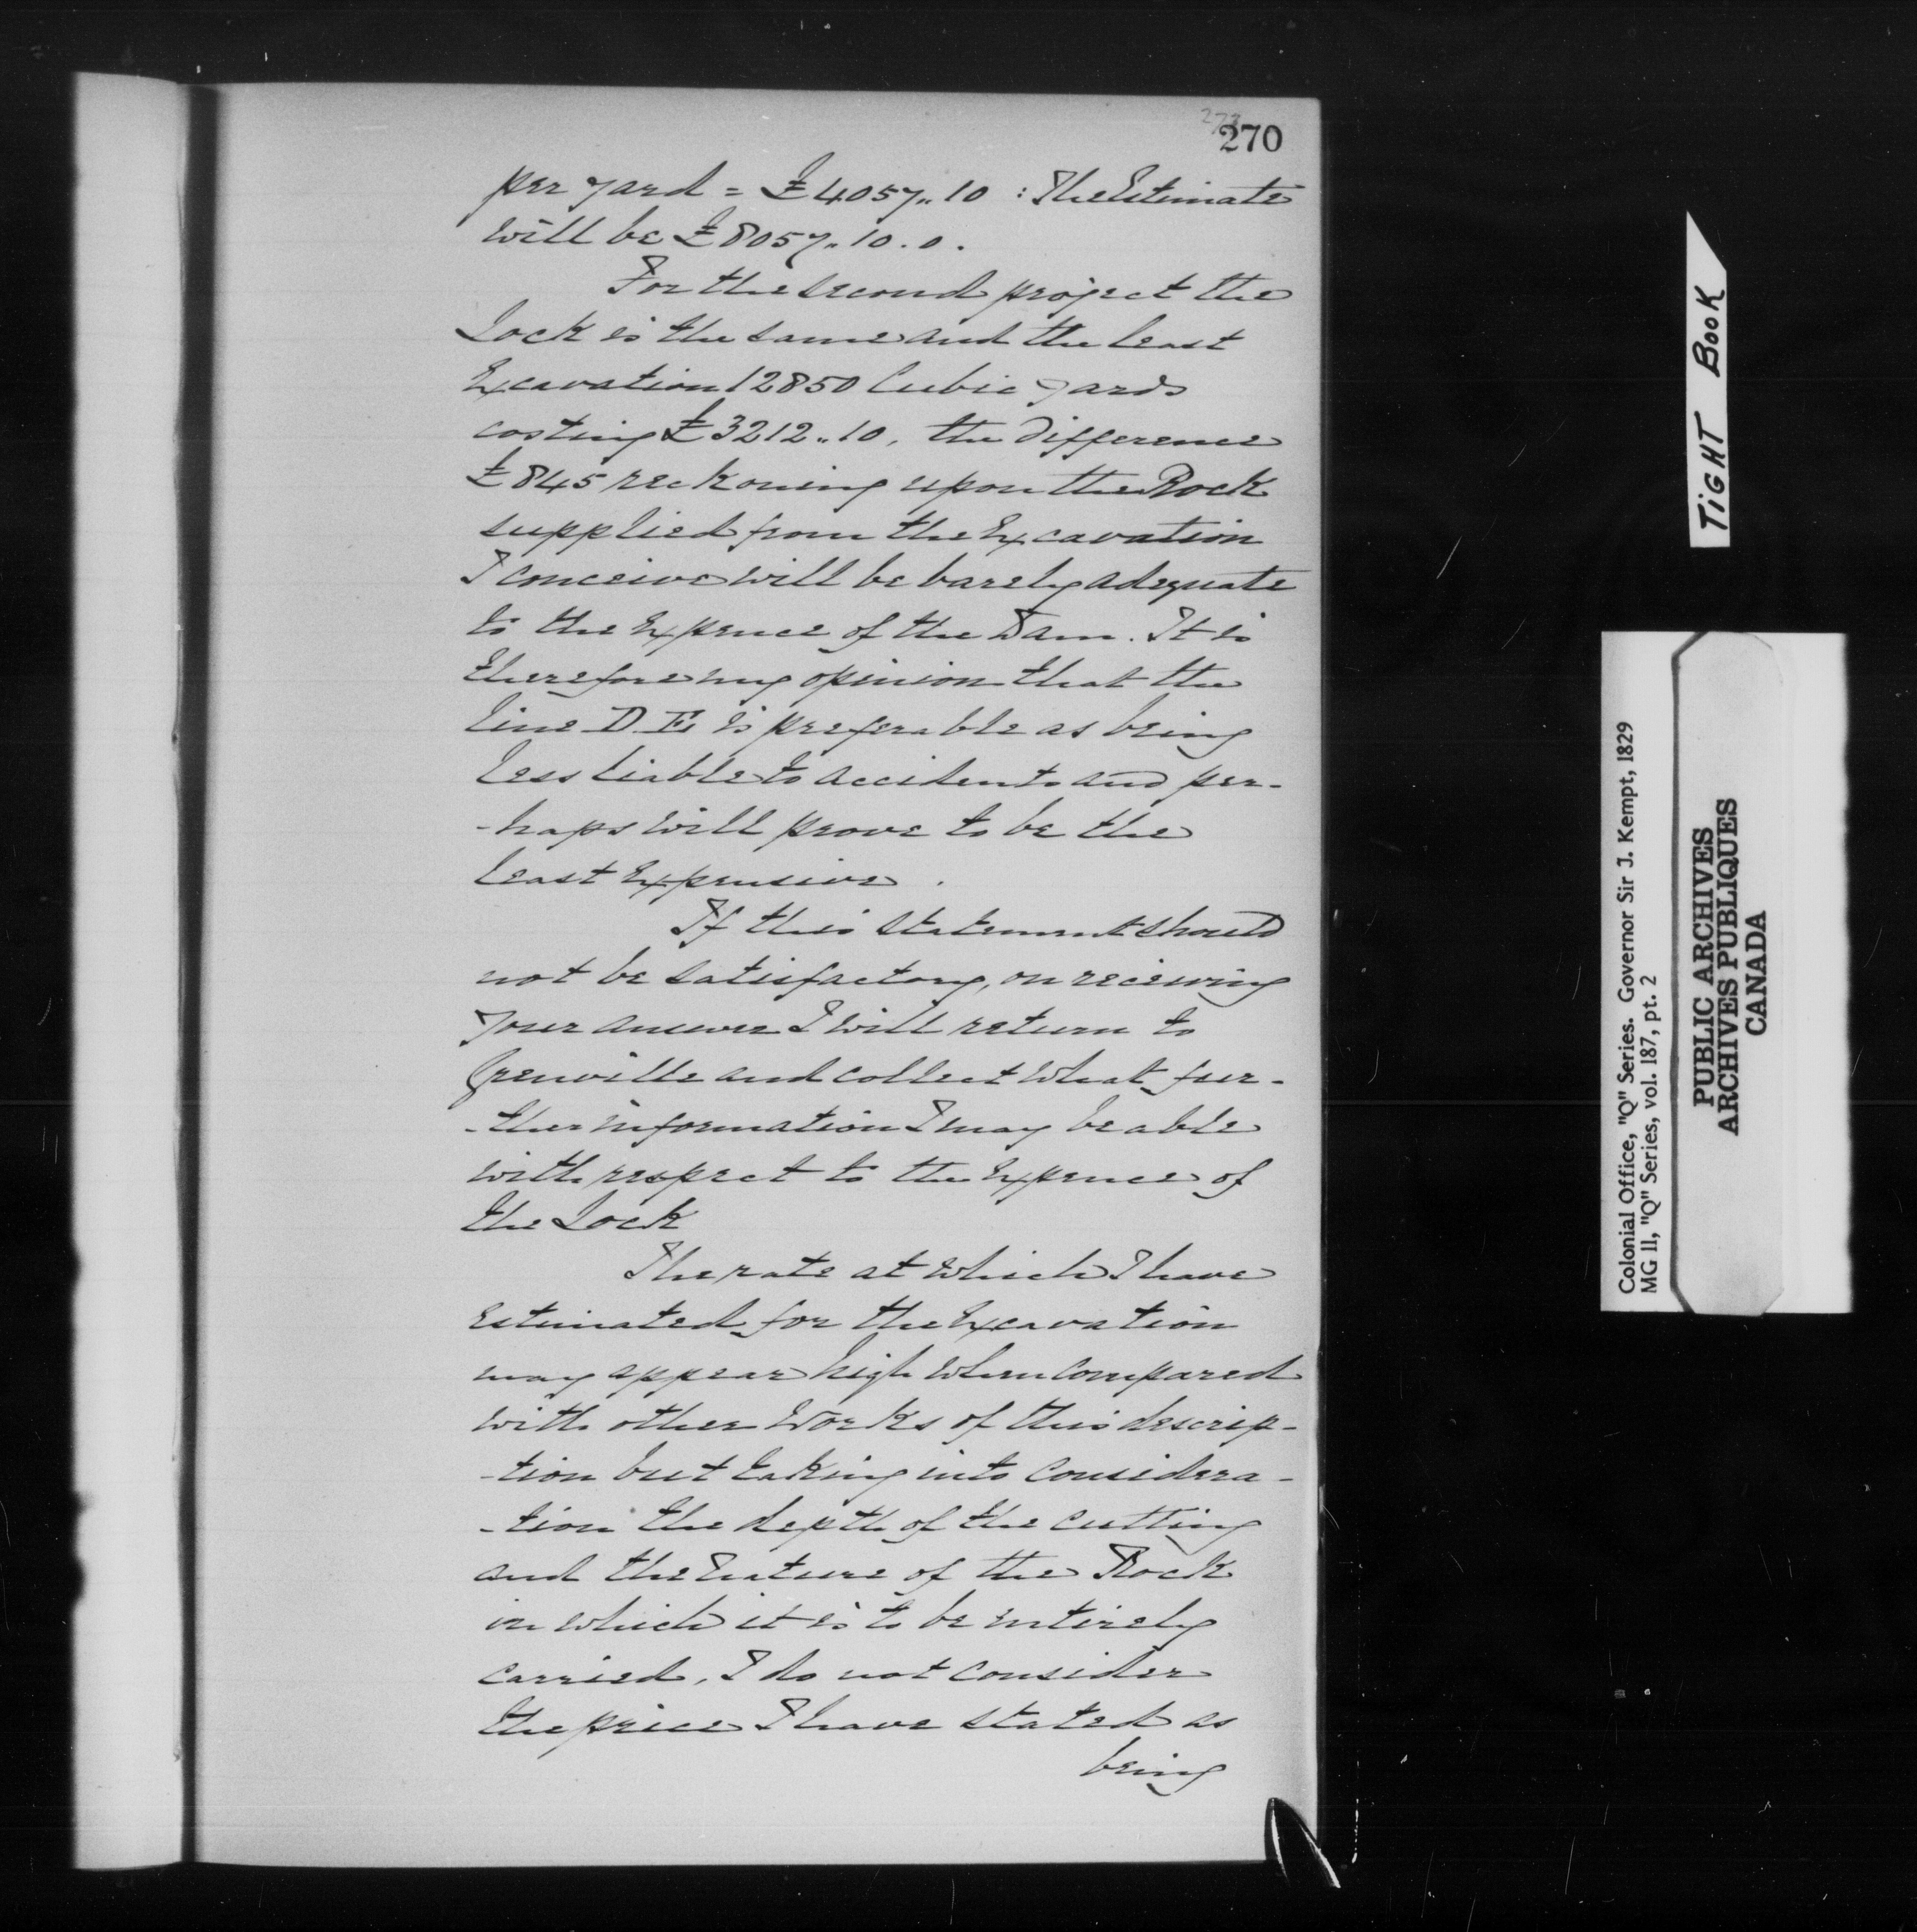 270
per yard = £4057,, 10 : The Estimate
will be £8057,, 10 . 0 .
For the second project the
Lock is the same and the least
Excavation 12850 Cubic yards
costing £3212,, 10, the difference
£845 reckoning upon the Rock
supplied from the Excavation
I conceive will be barely adequate
to the Expence of the Dam. It is
therefore my opinion that the
line D E is preferable as being
less liable to accidents and per-
-haps will prove to be the
least Expensive .
If this statement should
not be satisfactory, on receiving
your answer I will return to
Grenville and collect what fur-
-ther information I may be able
with respect to the Expence of
the Lock
The rate at which I have
Estimated for the Excavation
may appear high when compared
with other Works of this descrip-
-tion but taking into Considera-
-tion the depth of the cutting
and the nature of the Rock
in which it is to be entirely
carried, I do not consider
the price I have stated as
being
TIGHT BOOK
Colonial Office, "Q" Series. Governor Sir J. Kempt, 1829
MG 11, "Q" Series, vol. 187, pt. 2
PUBLIC ARCHIVES
ARCHIVES PUBLIQUES
CANADA